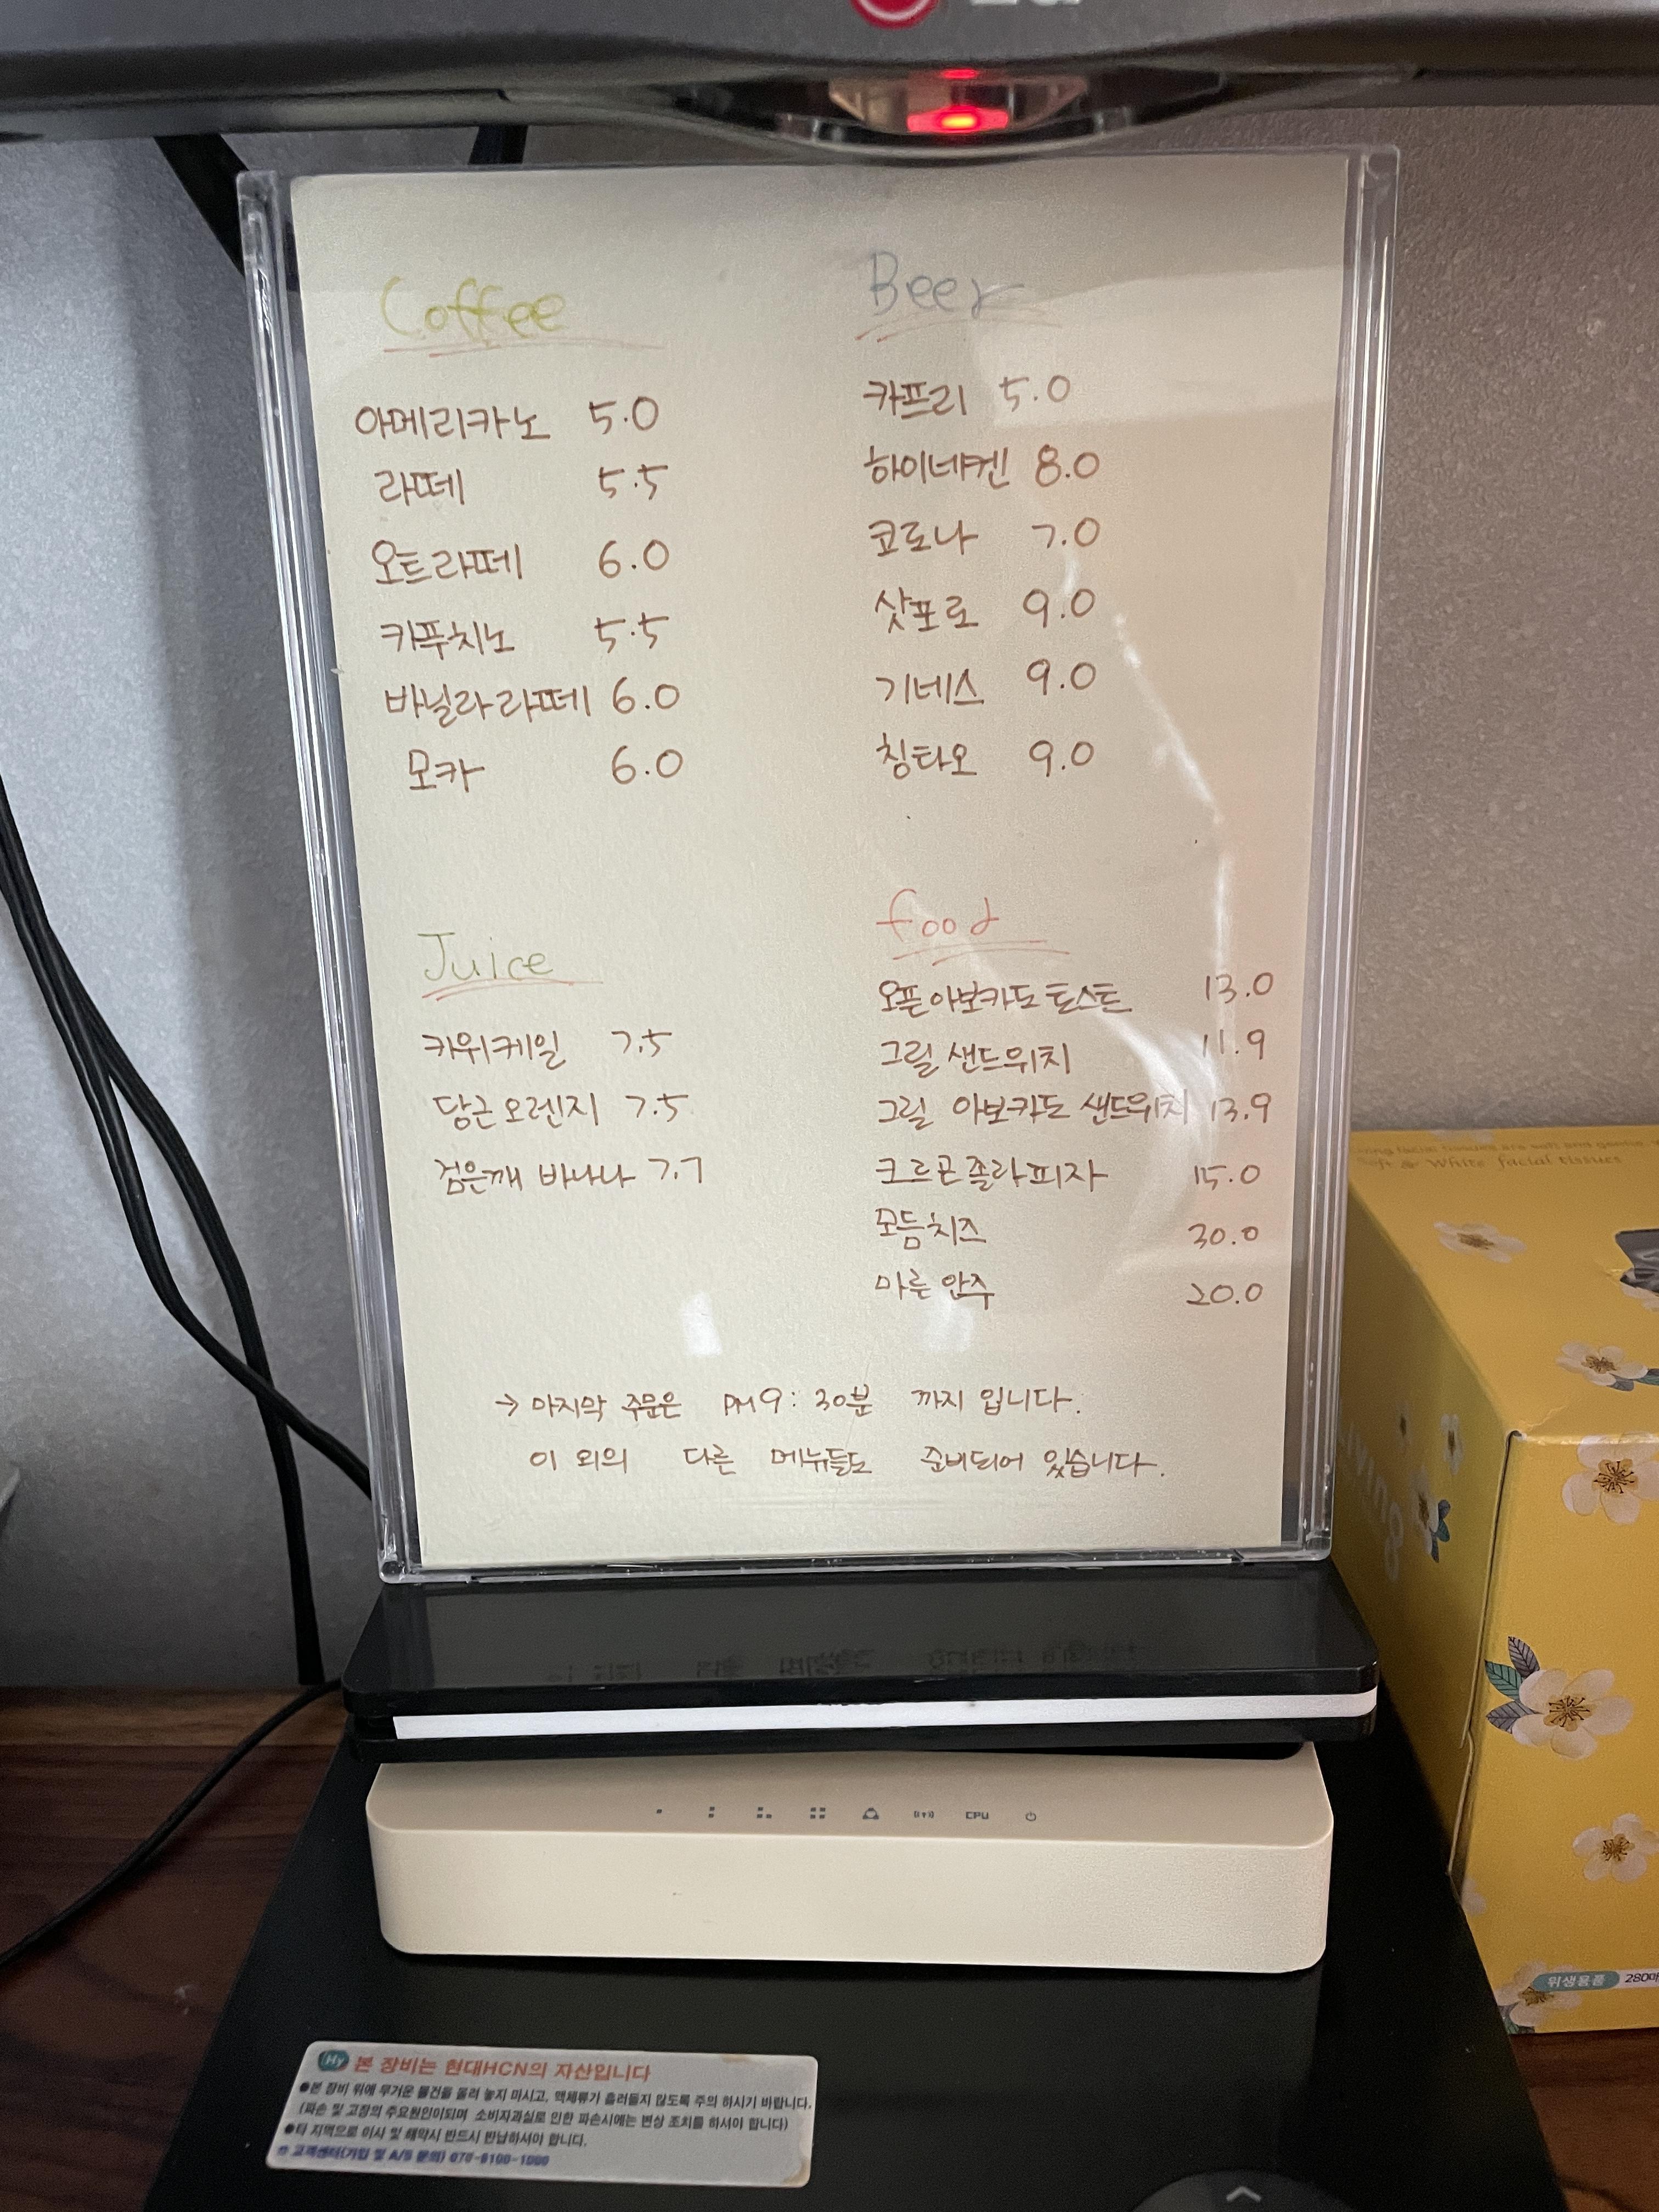 Coffee
아메리카노 5.0
라떼 5.5
오트라떼 6.0
카푸치노 5.5
바닐라라떼 6.0
모카 6.0
Beer
카프리 5.0
하이네켄 8.0
코로나 7.0
삿포로 9.0
기네스 9.0
칭타오 9.0
Juice
키위케일 7.5
당근오렌지 7.5
검은깨 바나나 7.7
food
오픈아보카도토스트 13.0
그릴 샌드위치 11.9
그릴 아보카도 샌드위치 13.9
크르곤졸라피자 15.0
모듬치즈 30.0
마른안주 20.0
→ 마지막 주문은 PM9:30분 까지 입니다.
이 외의 다른 메뉴들도 준비되어 있습니다.
Soft & White facial tissues
CPU
위생용품 280매
Hy 본 장비는 현대HCN의 자산입니다
●본 장비 위에 무거운 물건을 올려 놓지 마시고, 액체류가 흘러들지 않도록 주의 하시기 바랍니다.
(파손 및 고장의 주요원인이되며 소비자과실로 인한 파손시에는 변상 조치를 하셔야 합니다)
●타 지역으로 이사 및 해약시 반드시 반납하셔야 합니다.
고객센터(가입 및 A/S 문의) 070-8100-1000